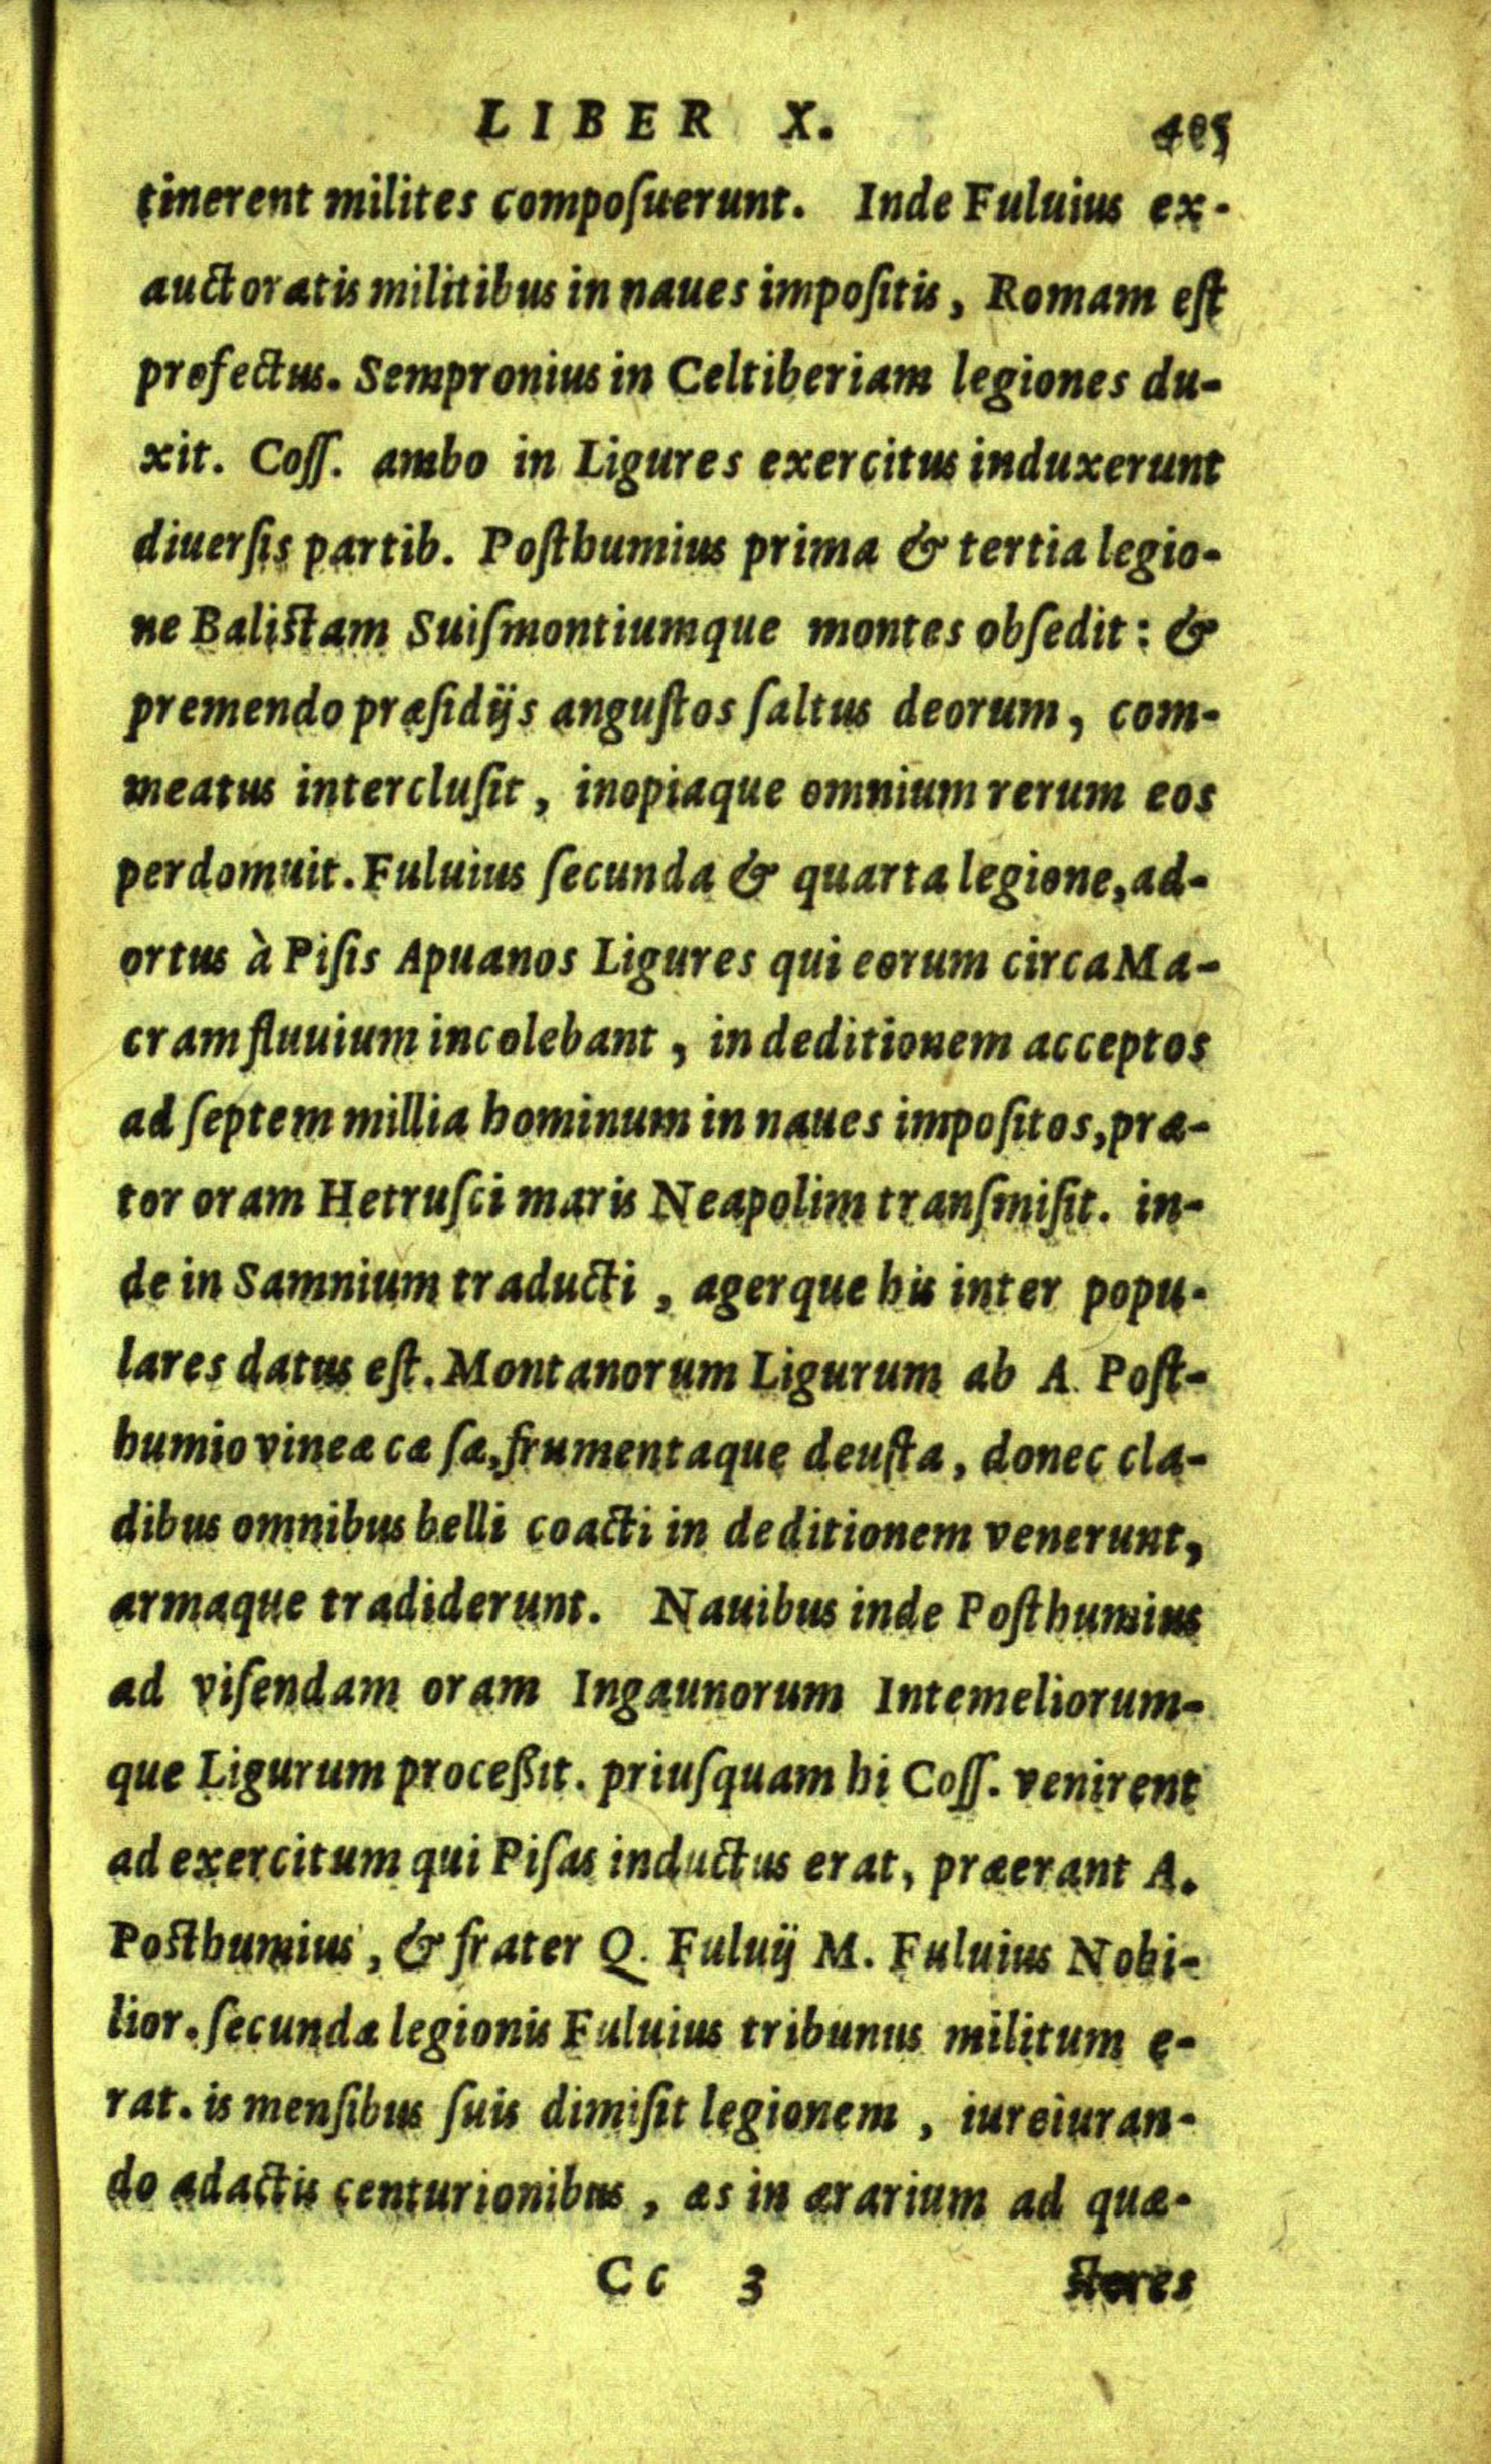 LIBER X. 405
tinerent milites composuerunt. Inde Fuluius ex-
auctoratis militibus in naues impositis, Romam est
profectus. Sempronius in Celtiberiam legiones du-
xit. Coſſ. ambo in Ligures exercitus induxerunt
diuerſis partib. Poſthumius prima & tertia legio-
ne Baliſtam Suiſmontiumque montes obſedit: &
premendo præſidijs anguſtos ſaltus deorum, com-
meatus intercluſit, inopiaque omnium rerum eos
perdomuit. Fuluius ſecunda & quarta legione, ad-
ortus à Piſis Apuanos Ligures qui eorum circa Ma-
cram fluuium incolebant, in deditionem acceptos
ad ſeptem millia hominum in naues impoſitos, præ-
tor oram Hetruſci maris Neapolim tranſmiſit. in-
de in Samnium traducti, agerque his inter popu-
lares datus eſt. Montanorum Ligurum ab A. Poſt-
humio vineæ cæſæ, frumentaque deuſta, donec cla-
dibus omnibus belli coacti in deditionem venerunt,
armaque tradiderunt. Nauibus inde Poſthumius
ad viſendam oram Ingaunorum Intemeliorum-
que Ligurum proceßit. priuſquam hi Coſſ. venirent
ad exercitum qui Piſas inductus erat, præerant A.
Poſthumius, & frater Q. Fuluij M. Fuluius Nobi-
lior. ſecundæ legionis Fuluius tribunus militum e-
rat. is menſibus ſuis dimiſit legionem, iureiuran-
do adactis centurionibus, æs in ærarium ad quæ-
Cc 3 ſtores